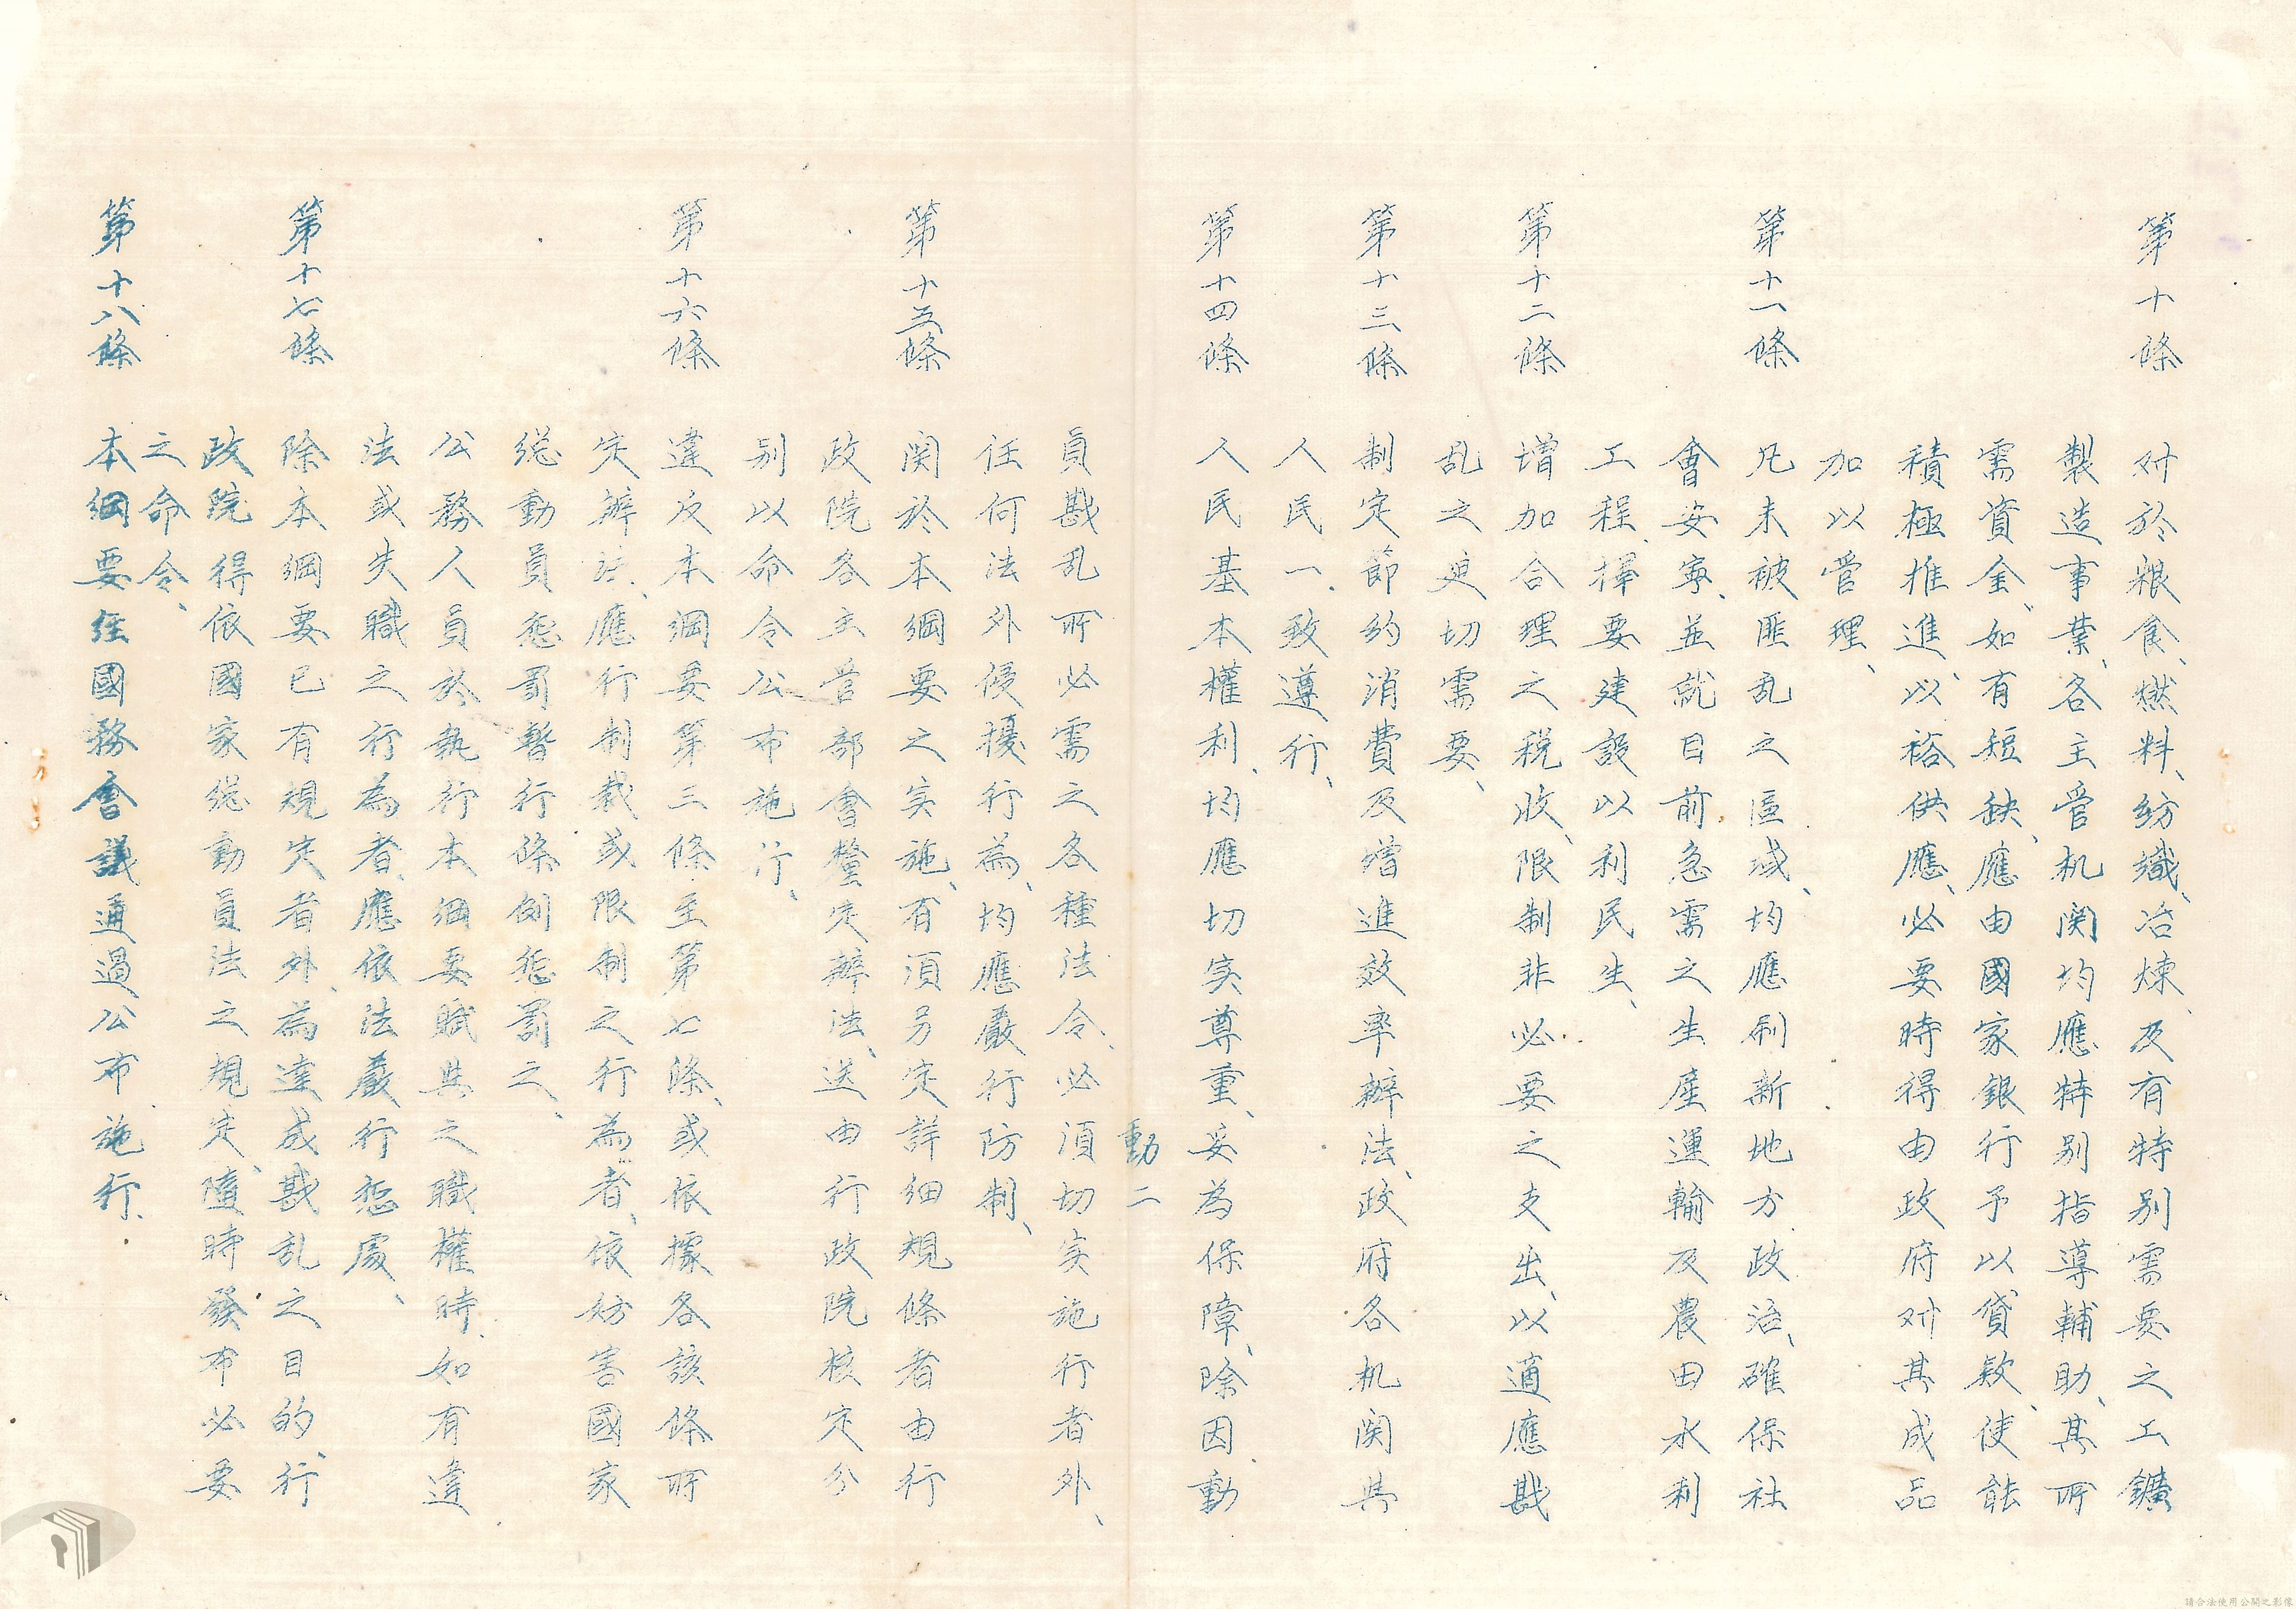 第十條　对於粮食、燃料、紡織、冶煉、及有特别需要之工鑛
製造事業、各主管机関均應特别指導輔助、其所
需資金、如有短缺、應由國家銀行予以貸欵、使能
積極推進、以裕供應、必要時得由政府对其成品
加以管理、
第十一條　凡未被匪乱之區域、均應刷新地方政治、確保社
會安寧、並就目前急需之生產運輸及農田水利
工程、擇要建設以利民生、
第十二條　增加合理之税收、限制非必要之支出、以適應戡
乱之迫切需要、
第十三條　制定節約消費及增進效率辦法、政府各机関與
人民一致遵行、
第十四條　人民基本權利、均應切实尊重、妥為保障、除因動
動二
員戡乱所必需之各種法令、必須切实施行者外、
任何法外侵擾行為、均應嚴行防制、
第十五條　関於本綱要之实施、有須另定詳細規條者由行
政院各主管部會釐定辦法、送由行政院核定分
别以命令公布施行、
第十六條　違反本綱要第三條至第七條、或依據各該條所
定辦法、應行制裁或限制之行為者、依妨害國家
総動員懲罰暫行條例懲罰之、
公務人員於執行本綱要賦與之職權時、如有違
法或失職之行為者、應依法嚴行懲處、
第十七條　除本綱要已有規定者外、為達成戡乱之目的、行
政院得依國家総動員法之規定、隨時發布必要
之命令、
第十八條　本綱要經國務會議通過公布施行、
請合法使用公開之影像